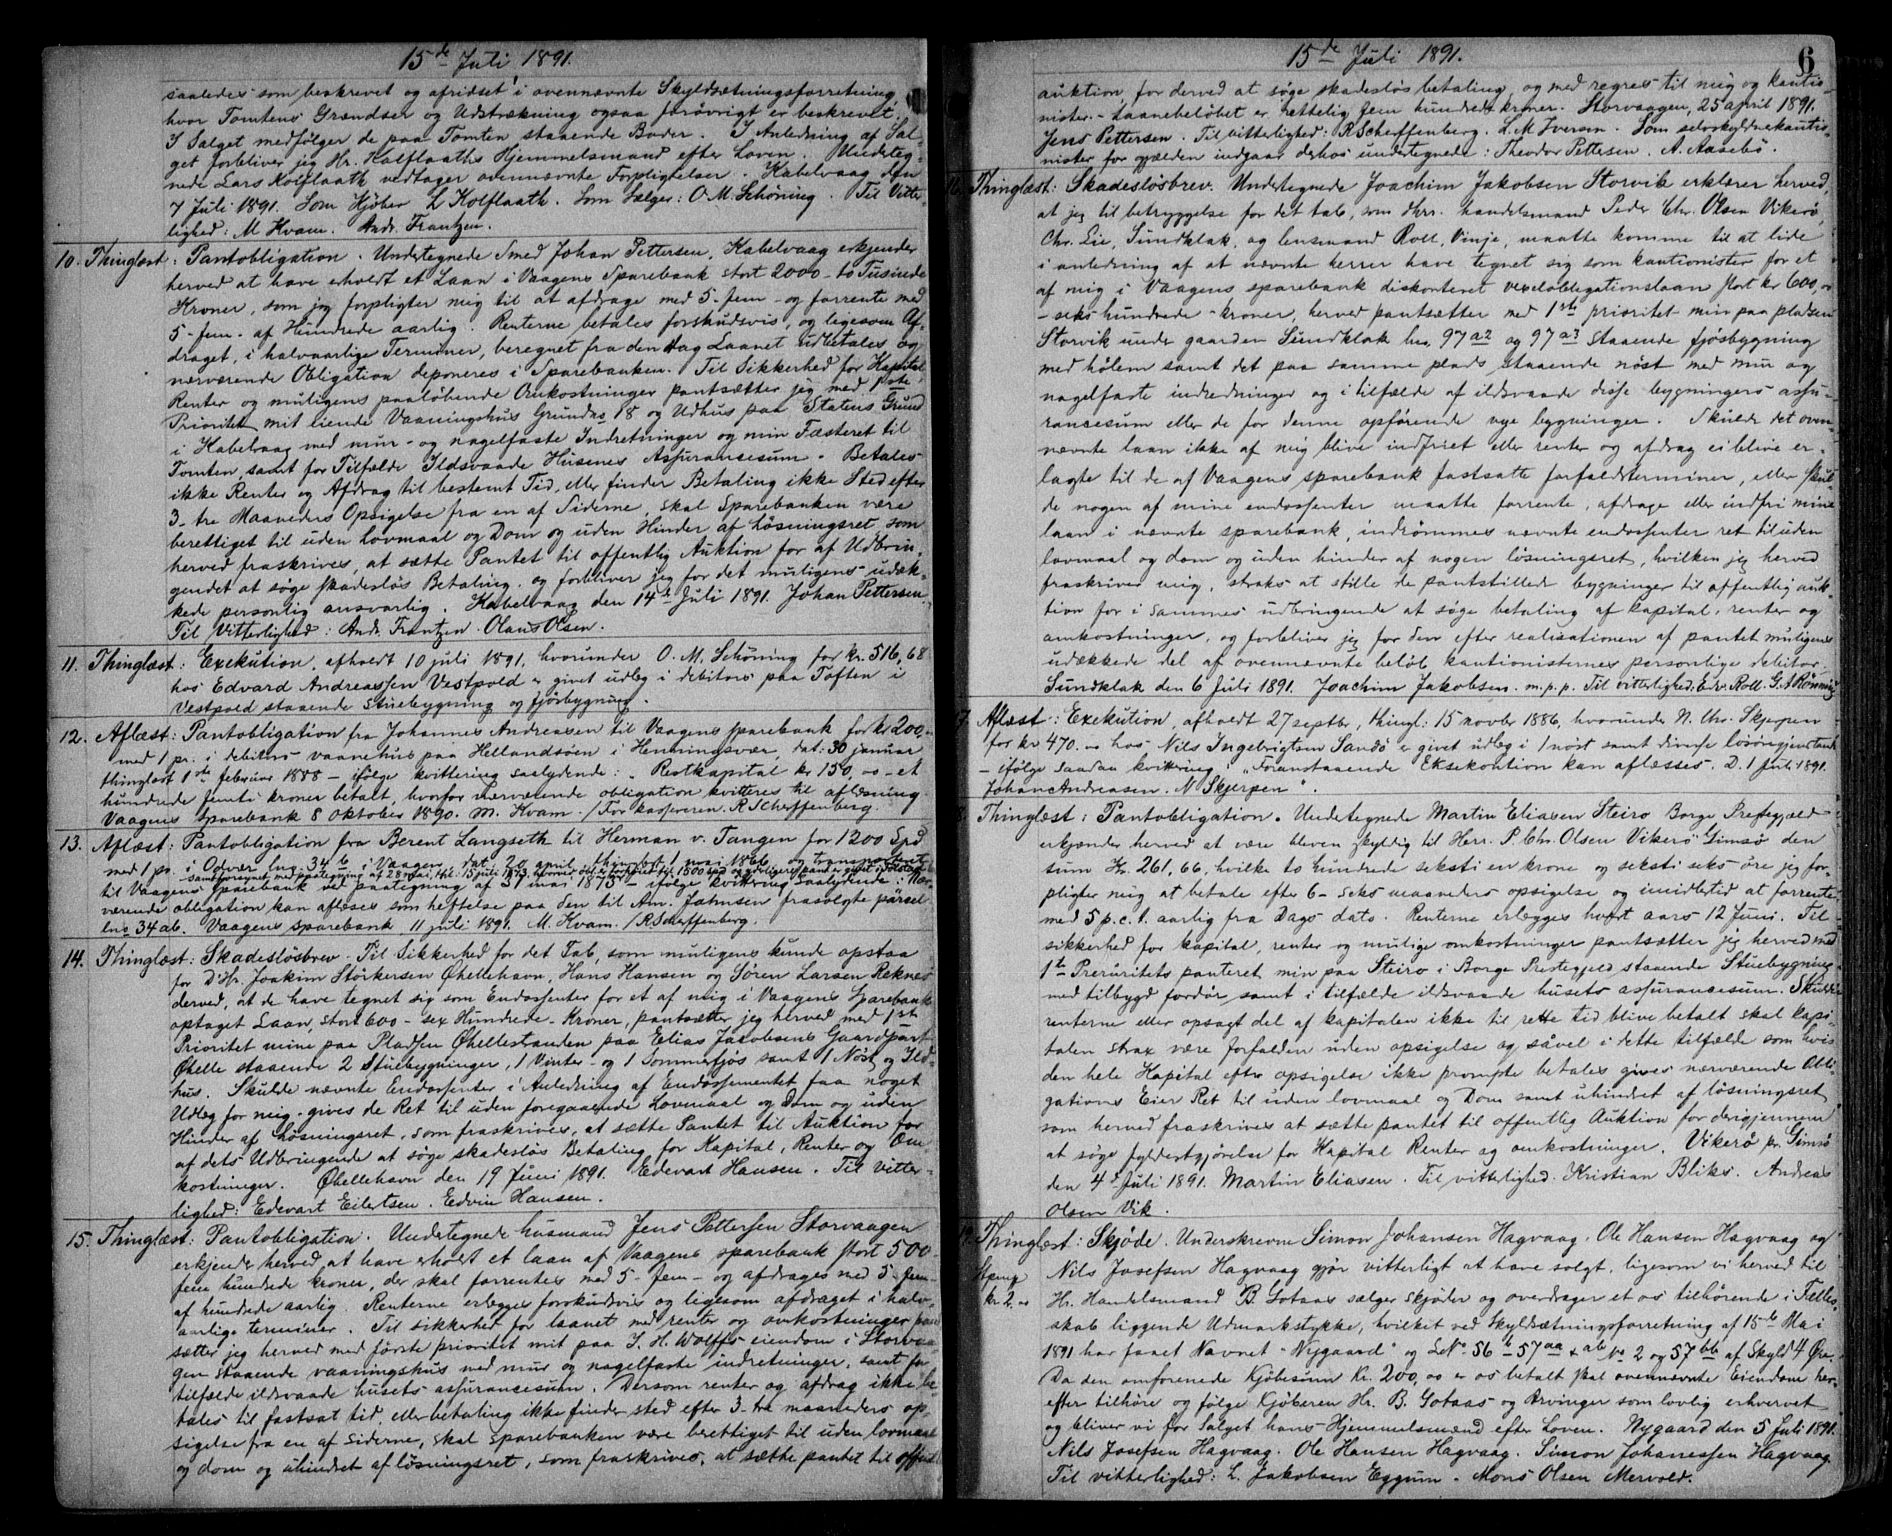 15de Juli 1891.
saaledes som beskrevet og afridset i ovennævnte Skyldsætningsforretning,
hvor Tomtens Grændser og Udstrækning ogsaa forøvrigt er beskrevet.
I Salget medfølger de paa Tomten staaende Boder. I Anledning af Sal-
get forbliver jeg Hr. Kolflaaths Hjemmelsmand efter Loven. Undeteg-
nede Lars Kolflaath vedtager ovennævnte Forpligtelser. Kabelvaag den
7 Juli 1891. Som Kjøber L Kolflaath. Som Sælger: O. M. Schöning. Til Vitter-
lighed: M Kvam. Andr. Frantzen.
10. Thinglæst: Pantobligation. Undertegnede Smed Johan Pettersen, Kabelvaag erkjender
herved at have erholdt et Laan i Vaagens Sparebank stort 2000 - to Tusinde
Kroner, som jeg forpligter mig til at afdrage med 5 - fem - og forrente med
5 - fem - af Hundrede aarlig. Renterne betales forskudsvis, og ligesom Af-
draget, i halvaarlige Terminer, beregnet fra den dag Laanet udbetales og
nærværende Obligation deponeres i Sparebanken. Til Sikkerhed for Kapital,
Renter og muligens paaløbende Omkostninger pantsætter jeg med 1ste
Prioritet mit eiende Vaaningshus Grundno 18 og Udhus paa Statens Grund
i Kabelvaag med mur- og nagelfaste Indretninger og min Fæsteret til
Tomten samt for Tilfælde Ildsvaade Husenes Assurancesum. Betales
ikke Renter og Afdrag til bestemt Tid, eller finder Betaling ikke Sted efter
3 - tre Maaneders Opsigelse fra en af Siderne, skal Sparebanken være
berettiget til uden Lovmaal og Dom og uden Hinder af Løsningsret, som
herved fraskrives, at sætte Pantet til offentlig Auktion for af Udbrin-
gendet at søge skadesløs Betaling, og forbliver jeg for det muligens udæk-
kede personlig ansvarlig. Kabelvaag den 14de Juli 1891. Johan Pettersen.
Til Vitterlighed: Andr. Frantzen. Olaus Olsen.
11. Thinglæst: Exekution, afholdt 10 juli 1891, hvorunder O. M. Schöning for kr. 516,68
hos Edvard Andreassen Vestpold er givet udlæg i debitors paa Toften i
Vestpold staaende stuebygning og fjøsbygning.
12. Aflæst: Pantobligation fra Johannes Andreassen til Vaagens sparebank for kr 200,
med 1 pr. i debitors vaanehus paa Hellandsøen i Henningsvær, dat. 30 januar
thinglæst 1ste februar 1888 - ifølge kvittering saalydende: „Restkapital kr 150,00 - et
hundrede femti kroner betalt, hvorfor nærværende obligation kvitteres til aflæsning.
Vaagens sparebank 8 oktober 1890. M. Kvam. / For kassereren. R Scherffenberg.
13. Aflæst: Pantobligation fra Berent Langseth til Herman v. Tangen for 1200 Spd
med 1 pr. i Odvær lno 34b i Vaagen, dat. 20 april, thinglæst 1 mai 1866, og transporteret
til Vaagens sparebank ved paategning af 31 mai 1875 - ifølge kvittering saalydende: „Nær-
værende obligation kan aflæses som heftelse paa den til Am. Jahnsen frasolgte parsel
lno 34ab. Vaagens sparebank 11 juli 1891. M. Kvam. / R Scherffenberg.
14. Thinglæst: Skadesløsbrev. Til Sikkerhed for det Tab, som muligens kunde opstaa
for D'Hr. Joakim Storkersen Øhellehavn, Hans Hansen og Søren Larsen Reknes
derved, at de have tegnet sig som Endossenter for et af mig i Vaagens Sparebank
optaget Laan, stort 600 - sex Hundrede - Kroner, pantsætter jeg herved med 1ste
Prioritet mine paa Pladsen Øhellestranden paa Elias Jakobsens Gaardpart
Øhelle staaende 2 Stuebygninger, 1 Vinter- og 1 Sommerfjøs samt 1 Nøst og Ild-
hus. Skulde nævnte Endossenter i Anledning af Endossementet faa noget
Udlæg for mig, gives de Ret til uden foregaaende Lovmaal og Dom og uden
Hinder af Løsningsret, som fraskrives, at sætte Pantet til Auktion for
af dets Udbringende at søge skadesløs Betaling for Kapital, Renter og Om-
kostninger. Øhellehavn den 19 Juni 1891. Edevart Hansen. Til vitter-
lighed: Edevart Eilertsen. Edvin Hansen.
15. Thinglæst: Pantobligation. Undertegnede husmand Jens Pettersen Storvaagen
erkjender herved, at have erholdt et laan af Vaagens sparebank stort 500 -
fem hundrede kroner, der skal forrentes med 5 - fem - og afdrages med 5 - fem -
af hundrede aarlig. Renterne erlægges forskudsvis og ligesom afdraget i halv-
aarlige terminer. Til sikkerhed for laanet med renter og omkostninger pant-
sætter jeg herved med første prioritet mit paa J. H. Wolffs eiendom i Storvaa-
gen staaende vaaningshus med mur og nagelfaste indretninger, samt for
tilfælde ildsvaade husets assurancesum. Dersom renter og afdrag ikke be-
tales til fastsat tid, eller betaling ikke finder sted efter 3 - tre maaneders op-
sigelse fra en af siderne, skal sparebanken være berettiget til uden lovmaal
og dom og uhindret af løsningsret, som fraskrives, at sætte pantet til offent
15de Juli 1891.
6
auktion, for derved at søge skadesløs betaling, og med regres til mig og kautio-
nister. Laanebeløbet er rettelig fem hundrede kroner. Storvaagen, 25 april 1891.
Jens Pettersen. Til vitterlighed: R Scherffenberg. L. M Iversen. Som selvskyldnerkautio-
nister for gjælden indgaar derhos undertegnede: Theodor Pettersen. A. Aasebø.
16. Thinglæst: Skadesløsbrev. Undertegnede Joachim Jakobsen Storvik erklærer herved,
at jeg til betryggelse for det tab, som Hrr. handelsmand Peder Chr. Olsen Vikerø,
Chr. Lie, Sundklak, og lensmand Roll, Vinje, maatte komme til at lide
i anledning af at nævnte herrer have tegnet sig som kautionister for et
af mig i Vaagens sparebank diskonteret vexelobligationslaan stort kr 600,00
- seks hundrede - kroner, herved pantsætter med 1ste prioritet min paa pladsen
Storvik under gaarden Sundklak lno 97a2 og 97a3 staaende fjøsbygning
med hølem samt det paa samme plads staaende nøst med mur og
nagelfaste indredninger og i tilfælde af ildsvaade disse bygningers assu-
rancesum eller de for denne opførende nye bygninger. Skulde det oven-
nævnte laan ikke af mig blive indfriet eller renter og afdrag ei blive er-
lagte til de af Vaagens sparebank fastsatte forfaldsterminer, eller skul-
de nogen af mine endossenter maatte forrente, afdrage eller indfri mine
laan i nævnte sparebank, indrømmes nævnte endossenter ret til uden
lovmaal og dom og uden hinder af nogen løsningsret, hvilken jeg herved
fraskriver mig, straks at stille de pantstillede bygninger til offentlig auk-
tion for i sammes udbringende at søge betaling af kapital, renter og
omkostninger, og forbliver jeg for den efter realisationen af pantet muligens
udækkede del af ovennævnte beløb kautionisternes personlige debitor.
Sundklak den 6 Juli 1891. Joachim Jakobsen. m. p. p. Til vitterlighed: Edv. Roll. G. A Rönning
17. Aflæst: Exekution, afholdt 27 septbr, thingl: 15 novbr 1886, hvorunder N. Chr. Skjerpen
for kr 470.00 hos Nils Ingebrigtsen Sandø er givet udlæg i 1 nøst samt diverse løsøregjenstande
- ifølge saadan kvittering: „Foranstaaende Eksekution kan aflæsses. D. 1 Juli 1891.
Johan Andreasen. N Skjerpen".
18. Thinglæst: Pantobligation. Undertegnede Martin Eliasen Steiro Borge Prestegjæld
erkjender herved at være bleven skyldig til Herr. P. Chr. Olsen Vikerö Gimsö den
sum Kr. 261,66, hvilke to hundrede seksti en krone og seksti seks øre jeg for-
pligter mig at betale efter 6 - seks maaneders opsigelse og imidlertid at forrente
med 5 p.c.t. aarlig fra Dags dato. Renterne erlægges hvert aars 12 Juni. Til
sikkerhed for kapital, renter og mulige omkostninger pantsætter jeg herved med
1ste Preriuritets panteret min paa Steiro i Borge Prestegjeld staaende Stuebygning
med tilbygd fordør samt i tilfælde ildsvaade husets assurancesum. Skulde
renterne eller opsagt del af kapitalen ikke til rette tid blive betalt skal kapi-
talen strax være forfalden uden opsigelse og såvel i dette tilfælde som hvis
den hele Kapital efter opsigelse ikke prompte betales gives nærværende Obli-
gations Eier Ret til uden lovmaal og Dom samt uhindret af løsningsret
som herved fraskrives at sætte pantet til offentlig Auktion for derigjennem
at søge fyldestgjørelse for Kapital Renter og omkostninger. Vikerö pr. Gimsö
den 4de Juli 1891. Martin Eliasen. Til vitterlighed. Kristian Bliks. Andreas
Olsen Vik.
19. Thinglæst: Skjøde. Underskrevne Simon Johansen Hagvaag, Ole Hansen Hagvaag og
Stempl
kr. 2.00
Nils Josefsen Hagvaag gjør vitterligt at have solgt, ligesom vi herved til
Hr. Handelsmand B. Gotaas sælger skjøder og overdrager et os tilhørende i Fælles-
skab liggende Udmarkstykke, hvilket ved Skyldsætningsforretning af 15de Mai
1891 har faaet Navnet "Nygaard" og L No 56b 57aa + ab No 2 og 57bb af Skyld 4 Øre.
Da den omforenede Kjøbesum Kr. 200,00 er os betalt skal ovennævnte Eiendom her-
efter tilhøre og følge Kjøberen Hr. B. Gotaas og Arvinger som lovlig erhvervet
og bliver vi for Salget hans Hjemmelsmænd efter Loven. Nygaard den 5 Juli 1891.
Nils Josefsen Hagvaag. Ole Hansen Hagvaag. Simon Johanessen Hagvaag.
Til vitterlighed: L. Jakobsen Eggum. Mons Olsen Mervold.